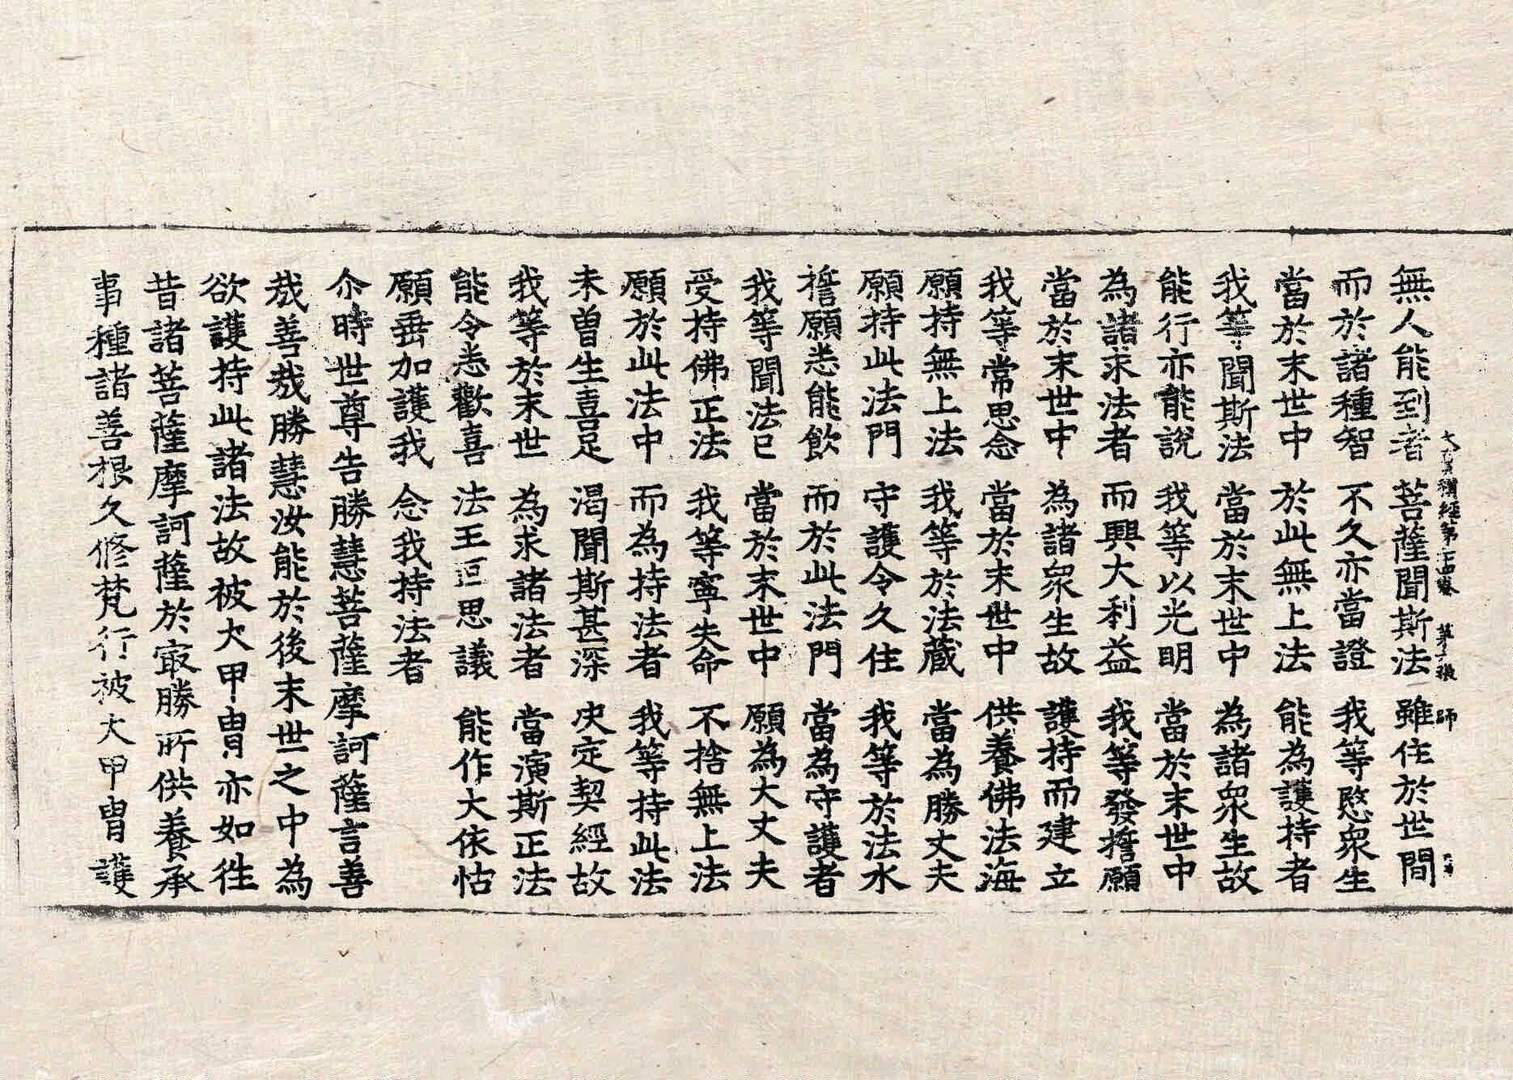 無人能到者 菩薩聞斯法 雖住於世間
大寶積經第二十四卷 第 張 師
而於諸種智 不久亦當證 我等愍衆生
當於末世中 於此無上法 能為護持者
我等聞斯法 當於末世中 為諸衆生故
能行亦能說 我等以光明 當於末世中
為諸求法者 而興大利益 我等發誓願
當於末世中 為諸衆生故 護持而建立
我等常思念 當於末世中 供養佛法海
願持無上法 我等於法藏 當為勝丈夫
願持此法門 守護令久住 我等於法水
誓願悉能飲 而於此法門 當為守護者
我等聞法已 當於末世中 願為大丈夫
受持佛正法 我等寧失命 不捨無上法
願於此法中 而為持法者 我等持此法
未曽生喜足 渴聞斯甚深 决定契經故
我等於末世 為求諸法者 當演斯正法
能令悉歡喜 法王叵思議 能作大依怙
願垂加護我 念我持法者
尒時世尊告勝慧菩薩摩訶薩言善
㢤善㢤勝慧汝能於後末世之中為
欲護持此諸法故被大甲胄亦如往
昔諸菩薩摩訶薩於㝡勝所供養承
事種諸善根久修梵行被大甲胄護